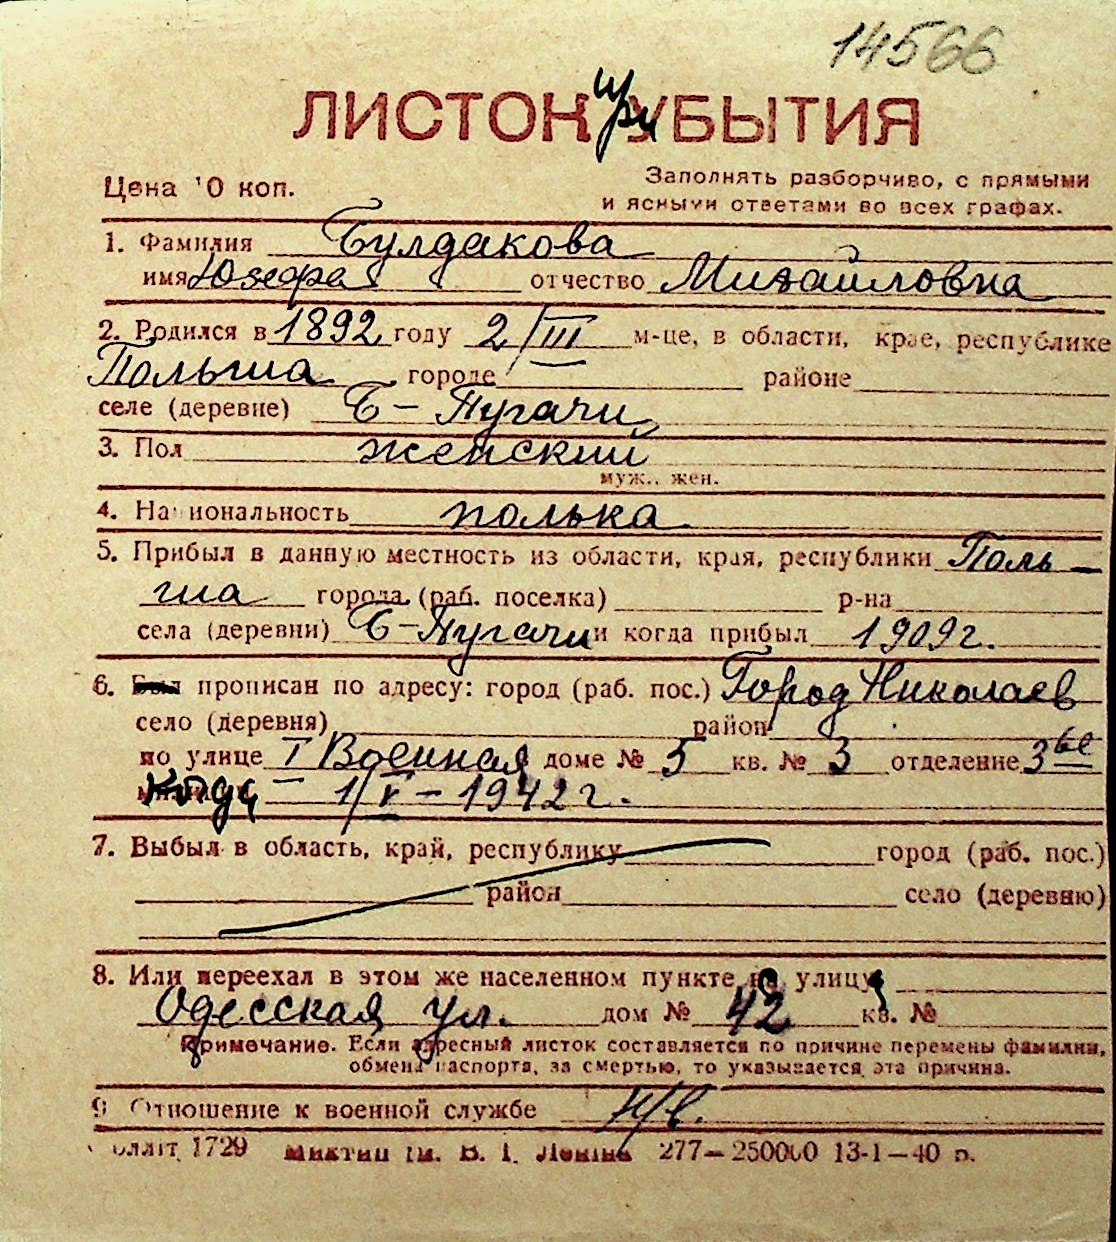 14566
ЛИСТОК при УБЫТИЯ
Цена 10 коп.
Заполнять разборчиво, с прямыми
и ясными ответами во всех графах.
1. Фамилия Булдакова
имя Юзефа отчество Михайловна
2. Родился в 1892 году 2/III м-це, в области, крае, республике
Польша городе районе
селе (деревне) Б-Пугачи
3. Пол женский
муж., жен.
4. Национальность полька
5. Прибыл в данную местность из области, края, республики Поль-
ша города (раб. поселка) р-на
села (деревни) Б-Пугачи и когда прибыл 1909 г.
6. Был прописан по адресу: город (раб. пос.) Город Николаев
село (деревня) район
по улице I Военная доме № 5 кв. № 3 отделение 3ье
Когда 1/V-1942 г.
7. Выбыл в область, край, республику город (раб. пос.)
район село (деревню)
8. Или переехал в этом же населенном пункте на улицу
Одесская ул. дом № 42 кв. №
Примечание. Если адресный листок составляется по причине перемены фамилии,
обмена паспорта, за смертью, то указывается эта причина.
9 Отношение к военной службе н/в.
1729 ім. В. І. Леніна 277—250000 13-1—40 р.